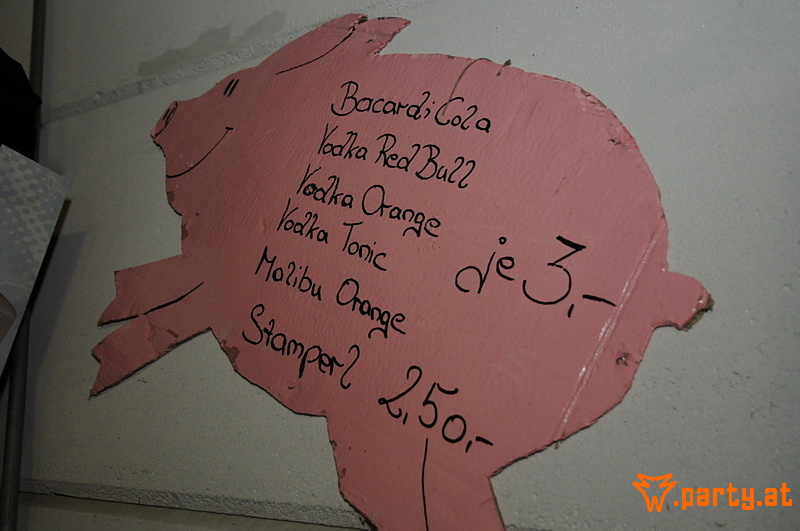 Bacardi Cola
Vodka Red Bull
Vodka Orange
Vodka Tonic
je 3,-
Malibu Orange
Stamperl 2,50,-
w.party.at